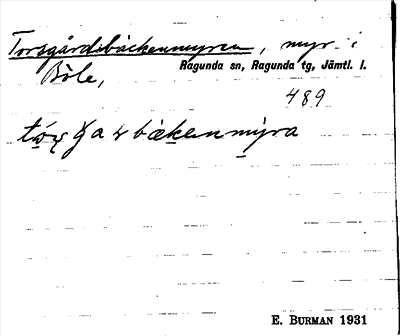 Torsgårdsbäckenmyren, myr i
Böle, Ragunda sn, Ragunda tg, Jämtl. l.
489
E. BURMAN 1931